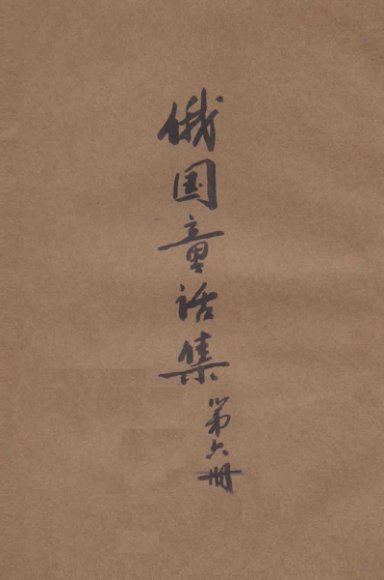 俄国童话集
第六册